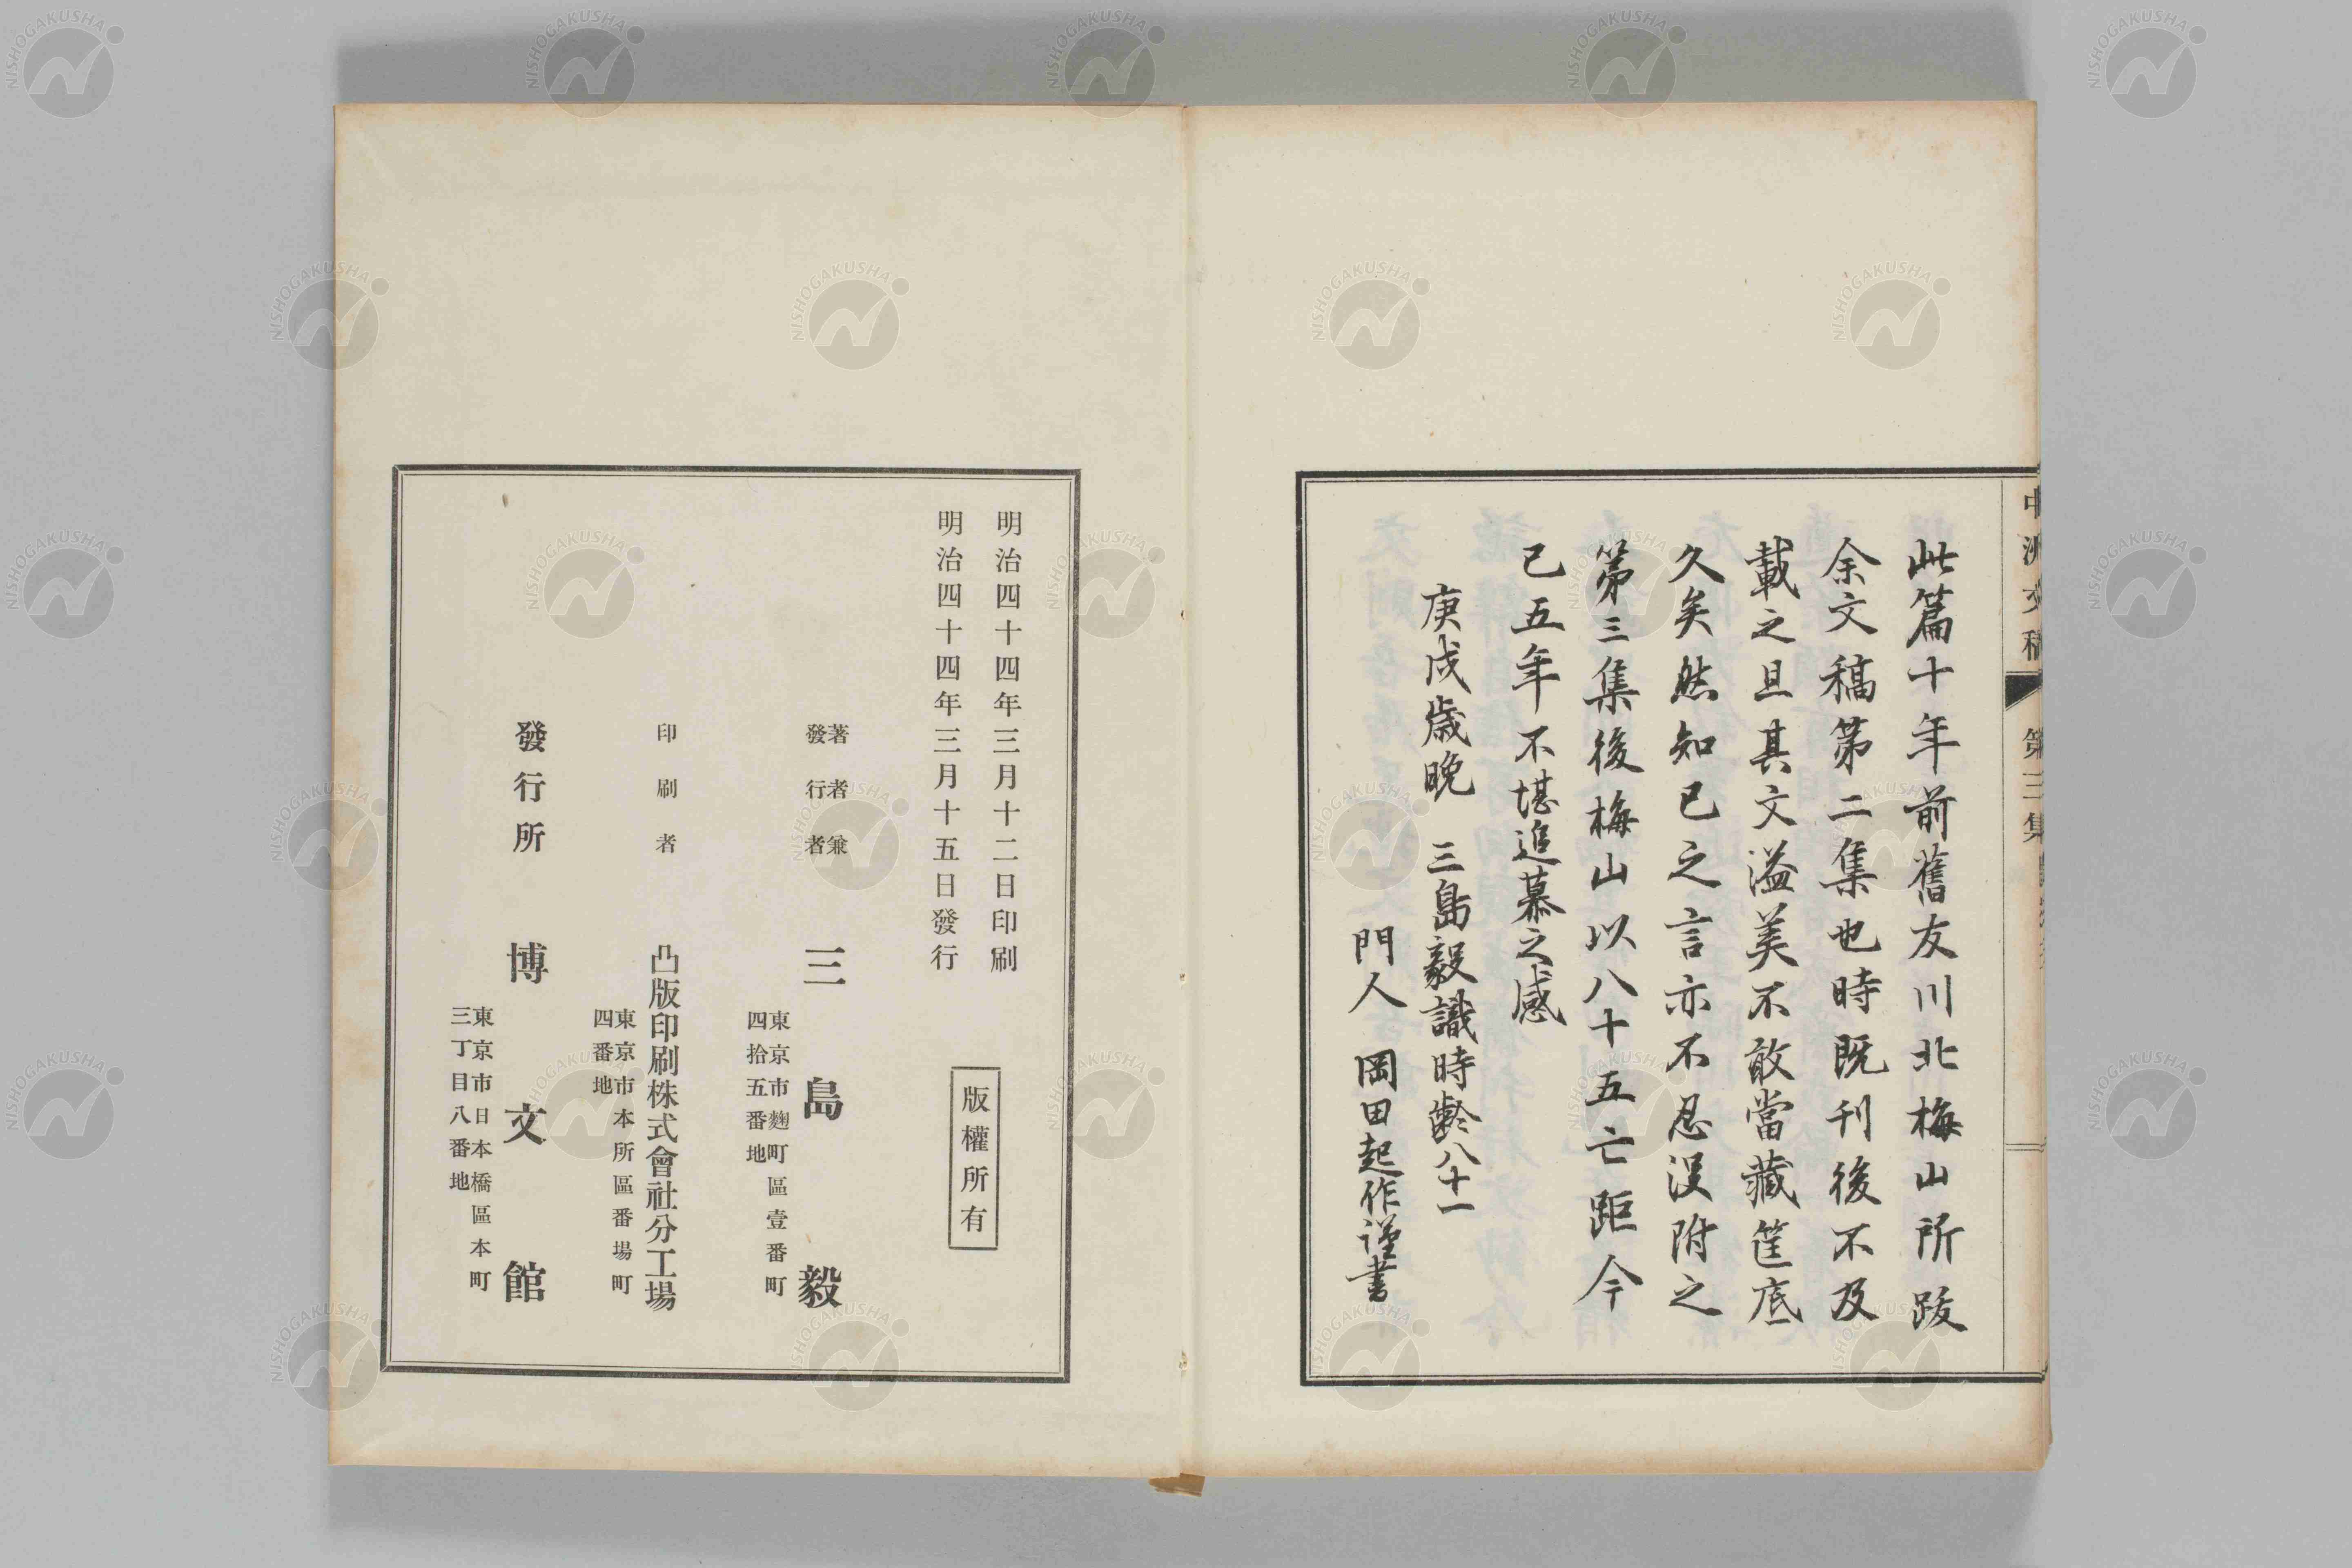 中洲文稿 第三集
此篇十年前舊友川北梅山所跋
余文稿第二集也時既刊後不及
載之且其文溢美不敢當藏筐底
久矣然知己之言亦不忍沒附之
第三集後梅山以八十五亡距今
已五年不堪追慕之感
庚戌歲晚 三島毅識時齡八十一
門人 岡田起作謹書
明治四十四年三月十二日印刷
明治四十四年三月十五日發行
版權所有
著者兼
發行者
三島毅
東京市麴町區壹番町
四拾五番地
印刷者
凸版印刷株式會社分工場
東京市本所區番場町
四番地
發行所
博文館
東京市日本橋區本町
三丁目八番地
NISHOGAKUSHA